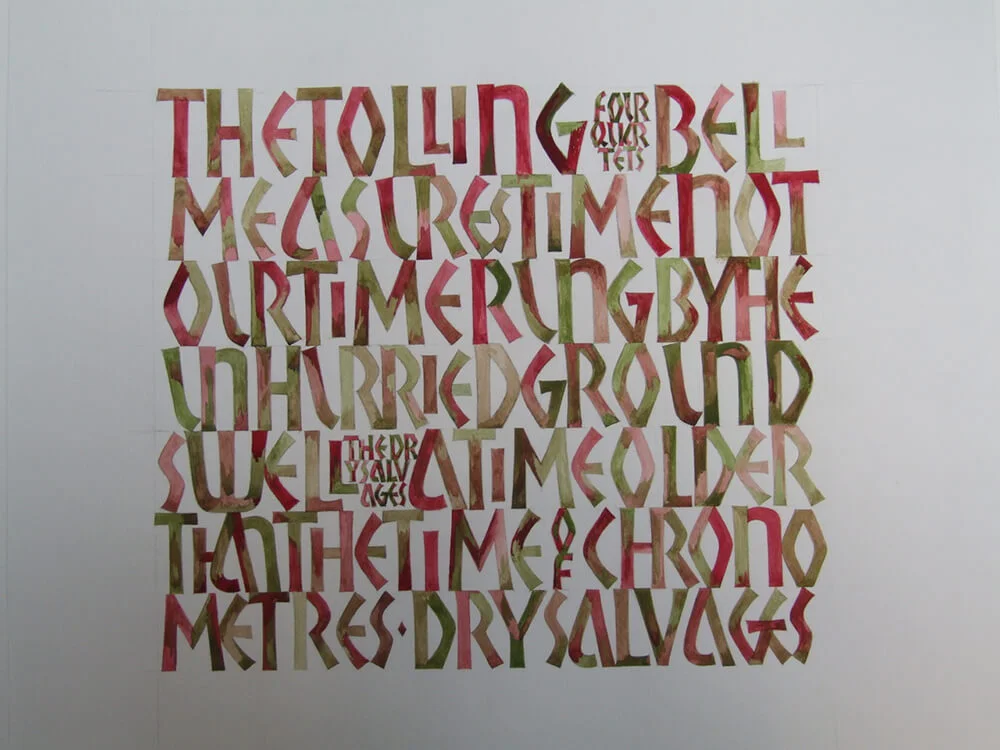 THE TOLLING
FOUR
QUAR
TETS
BELL
MEASURES TIME NOT
OUR TIME RUNG BY THE
UNHURRIED GROUND
SWELL
THE DR
Y SALV
AGES
A TIME OLDER
THAN THE TIME OF CHRONO
METRES · DRY SALVAGES